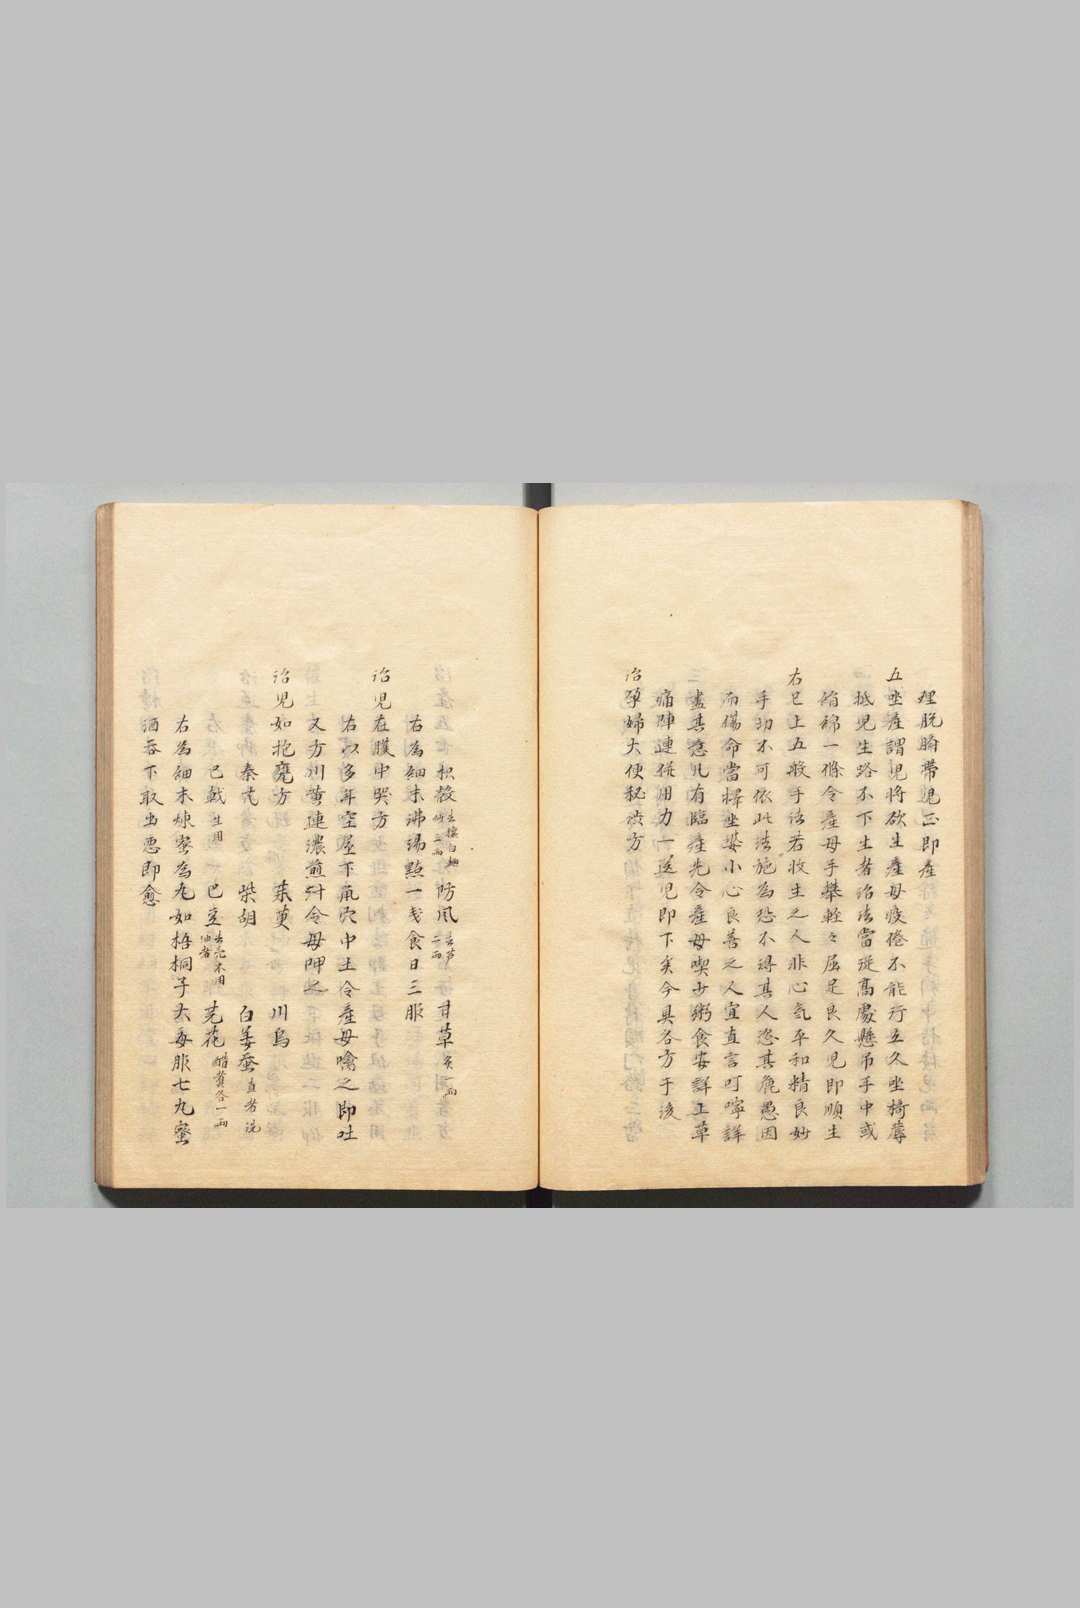 理脱臍帶兒正即產
五坐產謂兒將欲生產母疲倦不能行立久坐椅蓐
抵兒生路不下生者治法當從高處懸吊手中或
絹綿一條令產母手攀輕々屈足良久兒即順生
右已上五般手法若收生之人非心氣平和精良妙
手切不可依此法施為恐不得其人恣其危愚因
而傷命當擇坐婆小心良善之人宜直言叮嚀詳
盡其意凡有臨產先令產母喫少粥食安詳上草
痛陣連併用力一送兒即下矣今具各方于後
治孕婦大便秘澁方
枳殼去穰白麺炒三兩 防風去芦二兩 甘草炙一兩
右為細末沸湯點一戔食日三服
治兒在腹中哭方
右以多年空屋下䑕穴中土令產母噙之即吐
又方川黃連濃煎汁令母呷之
治兒如抱甕方
茱萸 川烏
秦艽 柴胡 白姜蚕直者洗
巴戟生用 巴豆去壳不用油者 芫花醋煑各一兩
右為細末煉蜜為丸如梧桐子大每服七丸蜜
酒吞下取出悪即愈